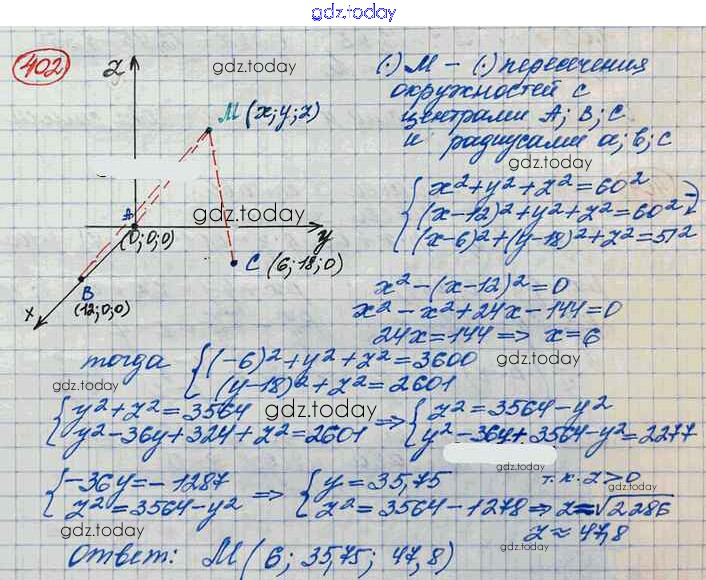 gdz.today
402
gdz.today
z
M (x; y; z)
A
(0; 0; 0)
gdz.today
y
C (6; 18; 0)
B
(12; 0; 0)
x
(·) M – (·) пересечения
окружностей с
центрами A; B; C
и радиусами a; b; c
gdz.today
x² + y² + z² = 60²
(x-12)² + y² + z² = 60²
(x-6)² + (y-18)² + z² = 51²
x² - (x-12)² = 0
x² - x² + 24x - 144 = 0
24x = 144 => x = 6
тогда { (-6)² + y² + z² = 3600
(y-18)² + z² = 2601
gdz.today
gdz.today
{ y² + z² = 3564
y² - 36y + 324 + z² = 2601
gdz.today
=> { z² = 3564 - y²
y² - 36y + 3564 - y² = 2277
gdz.today
{ -36y = -1287
z² = 3564 - y²
=> { y = 35,75
z² = 3564 - 1278 => z = √2286
т.к. z > 0
gdz.today
z ≈ 47,8
gdz.today
gdz.today
Ответ: M (6; 35,75; 47,8)